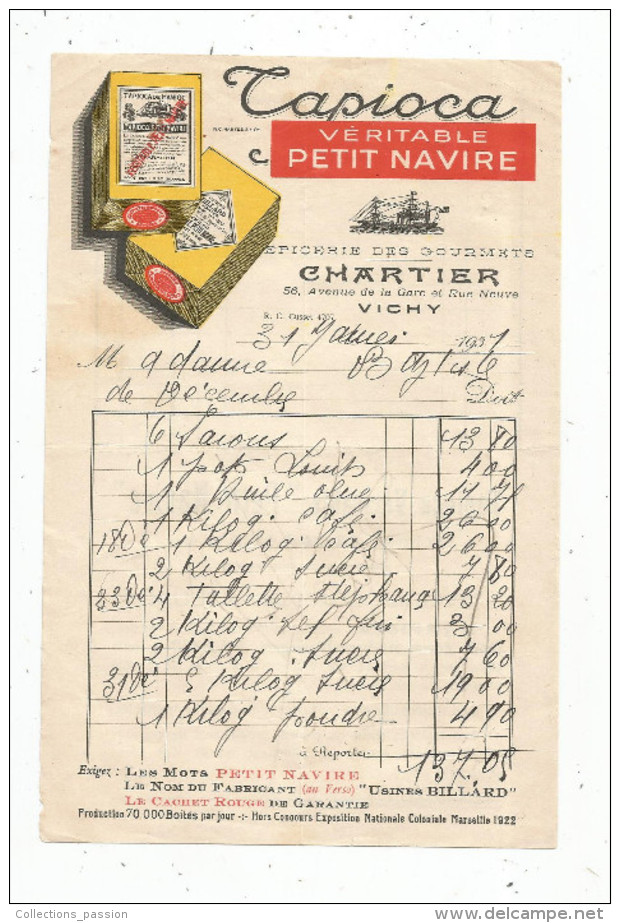 Tapioca
VÉRITABLE
PETIT NAVIRE
TAPIOCA DE MANIOC
EPICERIE DES GOURMETS
CHARTIER
56, Avenue de la Gare et Rue Neuve
VICHY
R. C. Cusset 4707
31 Janvier 1931
Madame Baptiste
de Décembre Doit
6 Savons 13 80
1 pot 4 00
1 huile olive
1 Kilog. Café 26 00
18 Dé 1 Kilog. Café 26 00
2 Kilog Sucre 7 80
23 Dé 4 Tablette 13 20
2 Kilog Sel fin 3 00
2 Kilog. Sucre 7 60
31 Dé 5 Kilog Sucre 19 00
1 Kilog poudre 4 90
à Reporter 137.05
Exigez : LES MOTS PETIT NAVIRE
LE NOM DU FABRICANT (au Verso) "USINES BILLARD"
LE CACHET ROUGE DE GARANTIE
Production 70 000 Boîtes par jour -:- Hors Concours Exposition Nationale Coloniale Marseille 1922
Collections_passion
delcampe.net